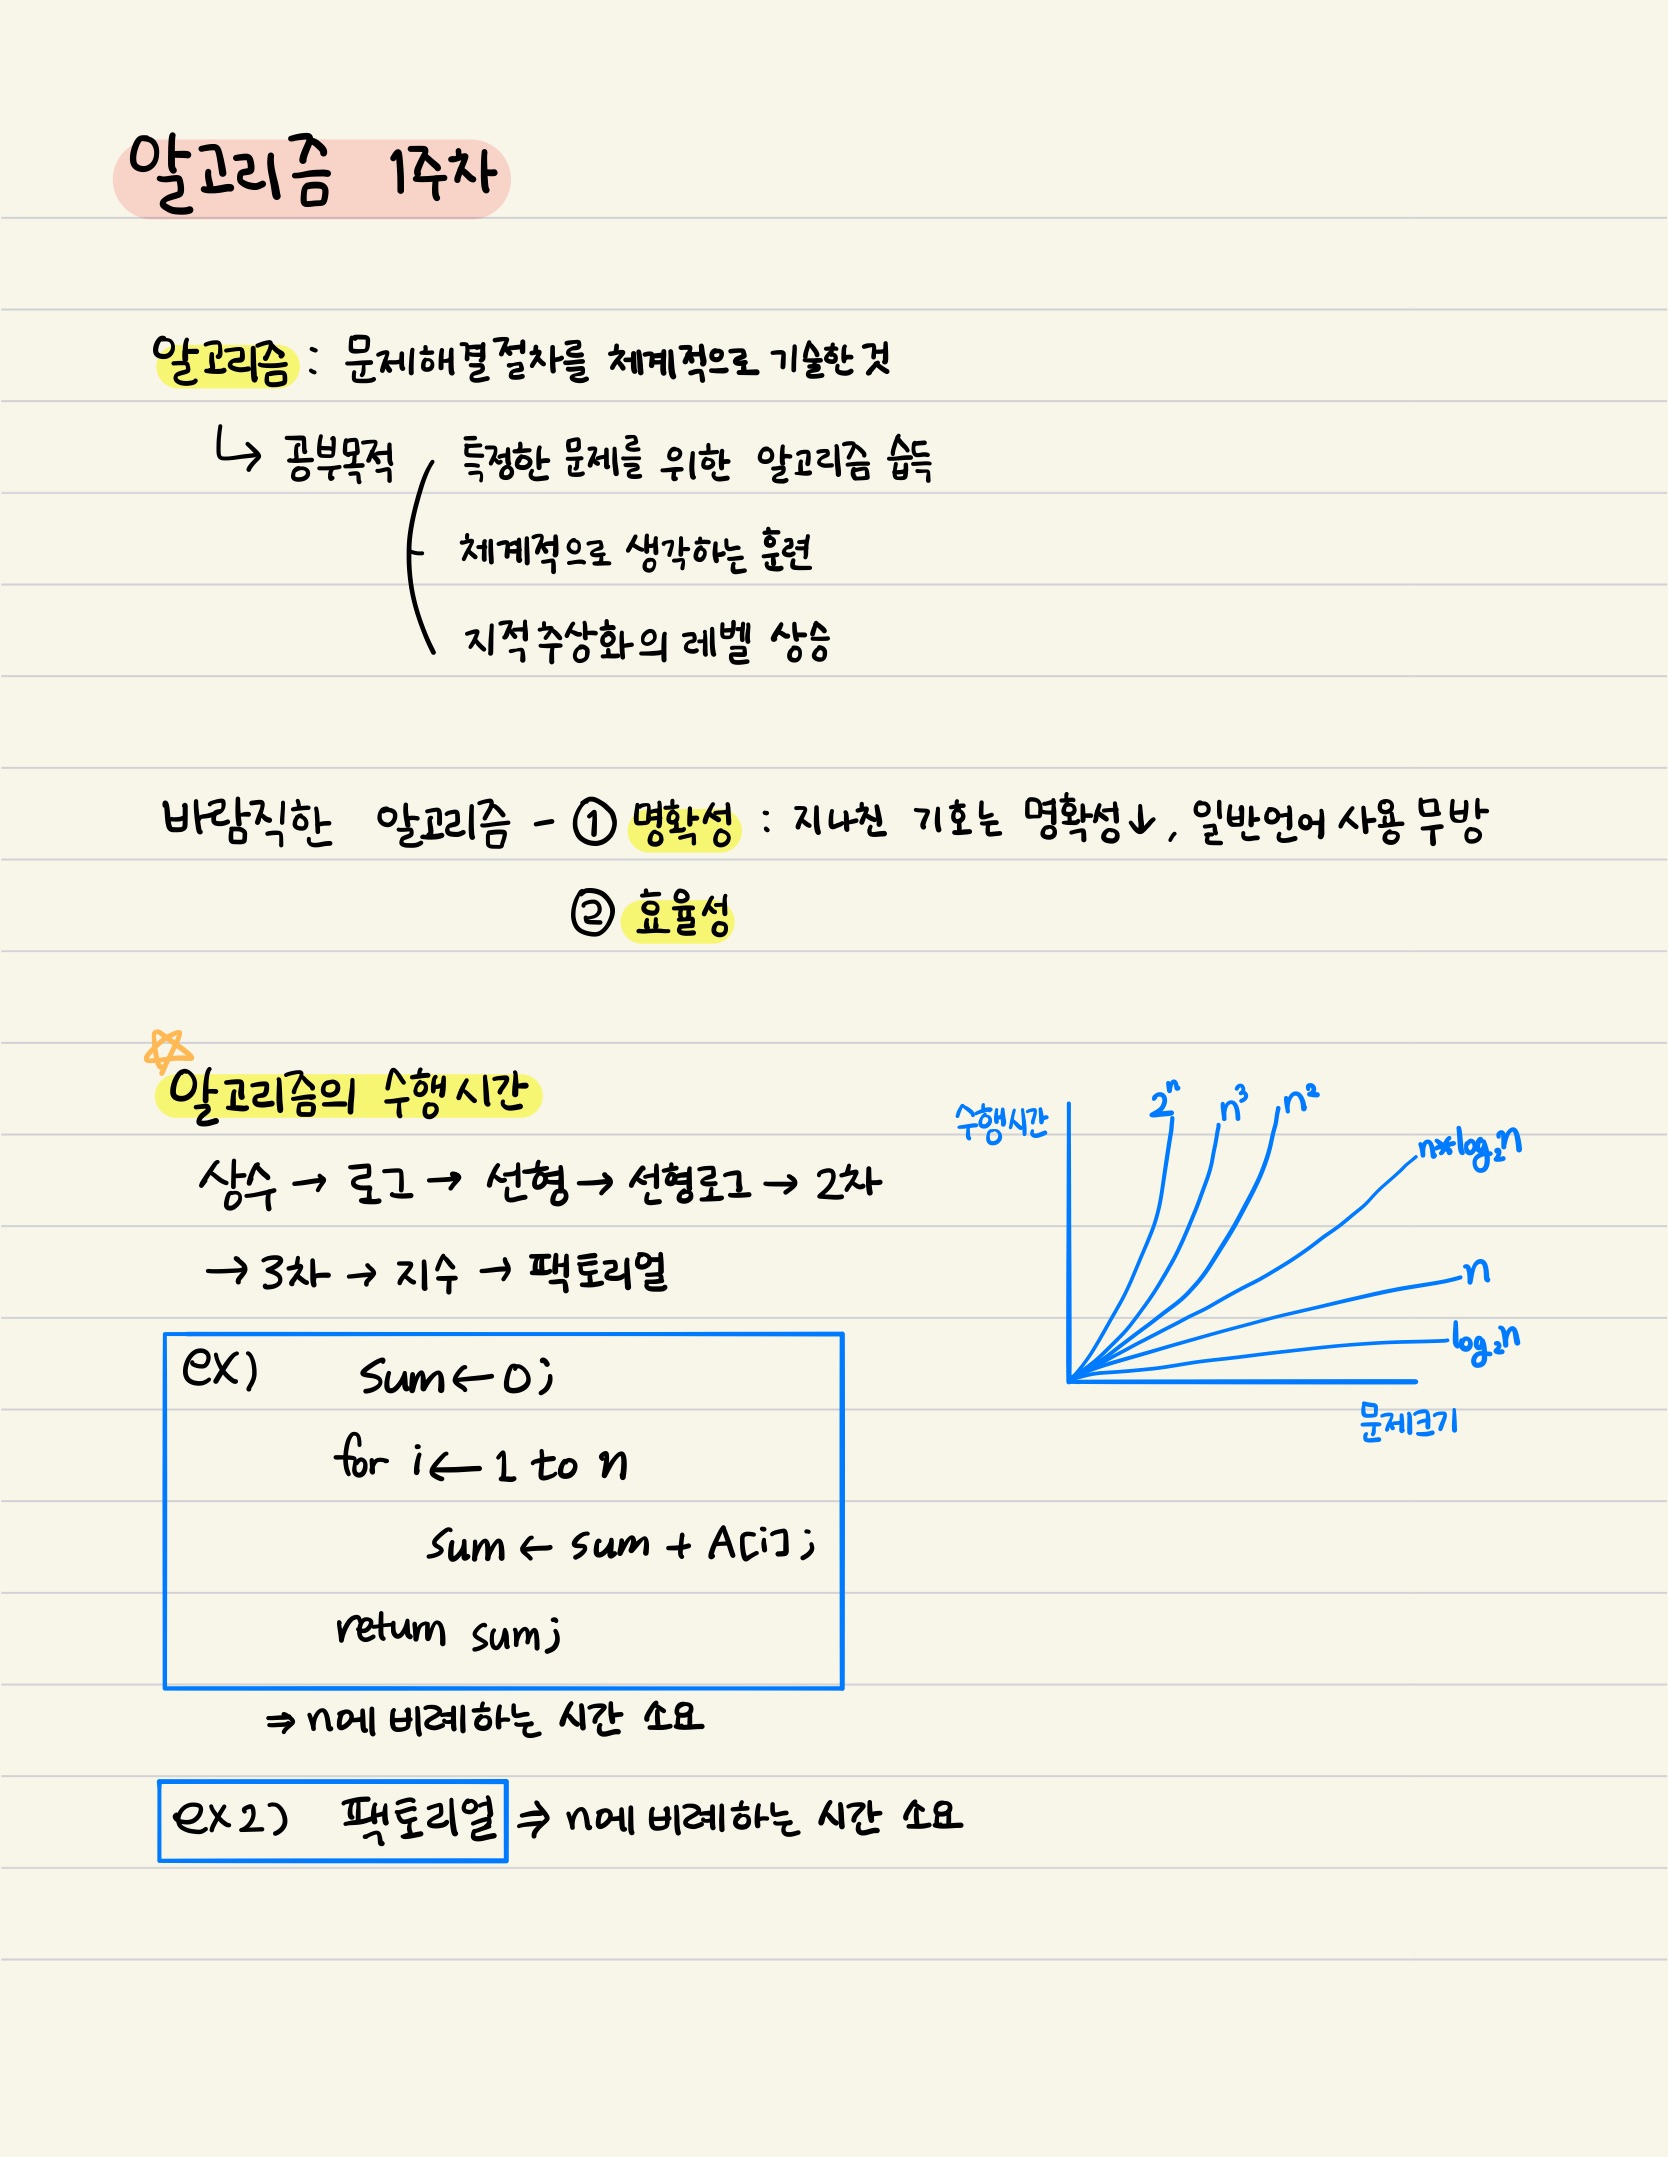 알고리즘 1주차
알고리즘 : 문제해결절차를 체계적으로 기술한 것
↳ 공부목적
특정한 문제를 위한 알고리즘 습득
체계적으로 생각하는 훈련
지적추상화의 레벨 상승
바람직한 알고리즘 - ① 명확성 : 지나친 기호는 명확성↓, 일반언어 사용 무방
② 효율성
☆
알고리즘의 수행시간
상수 → 로그 → 선형 → 선형로그 → 2차
→ 3차 → 지수 → 팩토리얼
수행시간
2ⁿ
n³
n²
n*log₂n
n
log₂n
문제크기
ex) sum ← 0;
for i ← 1 to n
sum ← sum + A[i];
return sum;
⇒ n에 비례하는 시간 소요
ex2) 팩토리얼 ⇒ n에 비례하는 시간 소요